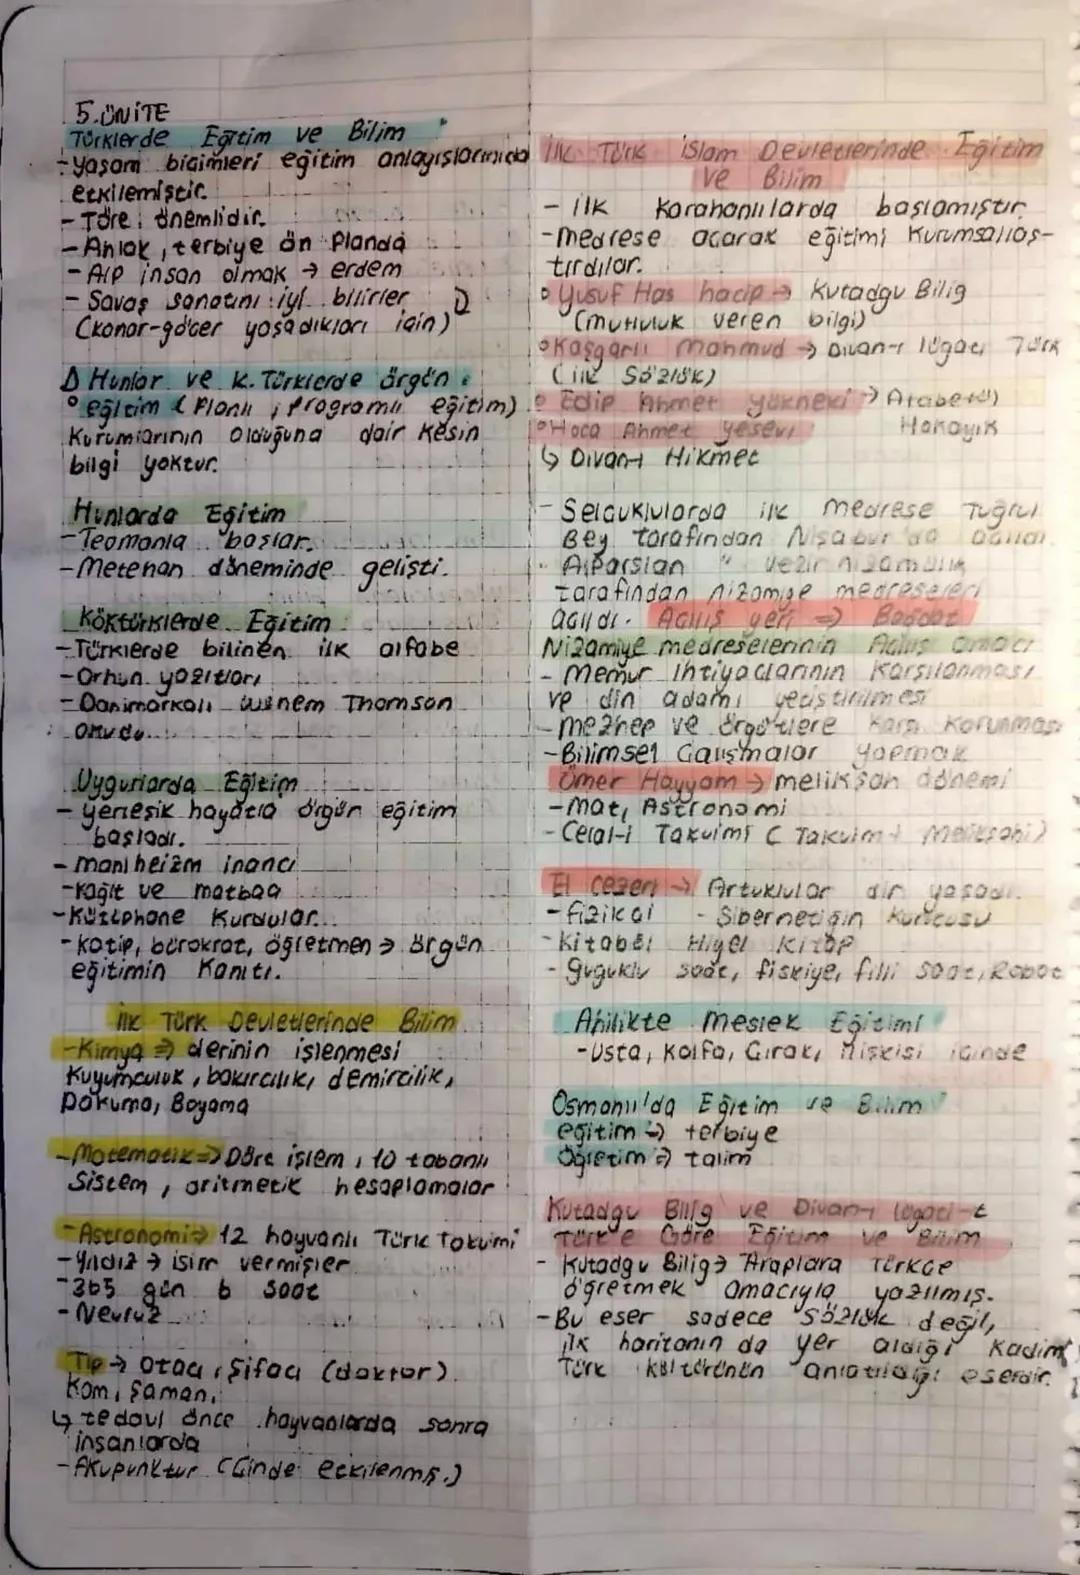 5.ÜNİTE
Türklerde Eğitim ve Bilim
-yaşam biçimleri eğitim anlayışlarınıda
etkilemiştir.
-Töre önemlidir.
-Ahlak, terbiye ön Planda
-Alp insan olmak → erdem
- Savaş sanatını iyi bilirler
(konar-göçer yaşadıkları için)
Δ Hunlar ve K.Türklerde örgün
° eğitim (Planlı, Programlı eğitim)
Kurumlarının Olduğuna dair Kesin
bilgi yoktur.
Hunlarda Eğitim
-Teomanla başlar.
-Metehan döneminde gelişti.
Köktürklerde Eğitim
-Türklerde bilinen ilk alfabe
-Orhun yazıtları
-Danimarkalı Thomson
okudu.
Uygurlarda Eğitim
- yerleşik hayatla örgün eğitim
başladı.
-maniheizm inancı
-Kağıt ve matbaa
-Kütüphane Kurdular.
-katip, bürokrat, öğretmen → örgün
eğitimin Kanıtı.
İlk Türk Devletlerinde Bilim
-Kimya ⇒ derinin işlenmesi
Kuyumculuk, bakırcılık, demircilik,
Dokuma, Boyama
-Matematik ⇒ Dört işlem, 10 tabanlı
Sistem, aritmetik hesaplamalar
-Astronomi ⇒ 12 hayvanlı Türk Takvimi
-Yıldız → isim vermişler
-365 gün 6 Saat
-Nevruz
Tıp → Otacı, Şifacı (doktor)
Kam, Şaman,
↳ tedavi önce hayvanlarda sonra
insanlarda
-Akupunktur (Çinde etkilenmiş.)
İlk Türk İslam Devletlerinde Eğitim
ve Bilim
- İlk Karahanlılarda başlamıştır
-Medrese açarak eğitimi Kurumsallaş-
tırdılar.
° Yusuf Has hacip → Kutadgu Bilig
(mutluluk veren bilgi)
° Kaşgarlı Mahmud → Divan-ı lügati Türk
(ilk Sözlük)
° Edip Ahmet yükneki → Atabetü'l
Hakayık
° Hoca Ahmet yesevi
↳ Divan-ı Hikmet
- Selçuklularda ilk medrese Tuğrul
Bey tarafından Nişabur'da açıldı.
- Alparslan " vezir nizamülik
tarafından nizamiye medreseleri
açıldı. Açılış yeri ⇒ Bağdat
Nizamiye medreselerinin Açılış amacı
- Memur İhtiyaçlarının Karşılanması
ve din adamı yetiştirilmesi
-mezhep ve örgütlere karşı Korunması
-Bilimsel Çalışmalar yapmak
Ömer Hayyam → melikşah dönemi
-Mat, Astronomi
-Celal-i Takvimi ( Takvim-i Melikşahi)
El cezeri → Artuklular dir yaşadı.
-fizikçi - Sibernetiğin kurucusu
-Kitabül Hiyel Kitap
- guguklu saat, fıskiye, filli saat, Robot
Ahilikte Meslek Eğitimi
-Usta, Kalfa, Çırak, ilişkisi içinde
Osmanlı'da Eğitim ve Bilim
eğitim → terbiye
Öğretim ⇒ talim
Kutadgu Bilig ve Divan-ı lügati-t
Türk'e Göre Eğitim ve Bilim
- Kutadgu Bilig → Araplara Türkçe
öğretmek amacıyla yazılmış.
-Bu eser sadece Sözlük değil,
ilk haritanın da yer aldığı Kadim
Türk kültürünün anlatıldığı eserdir.